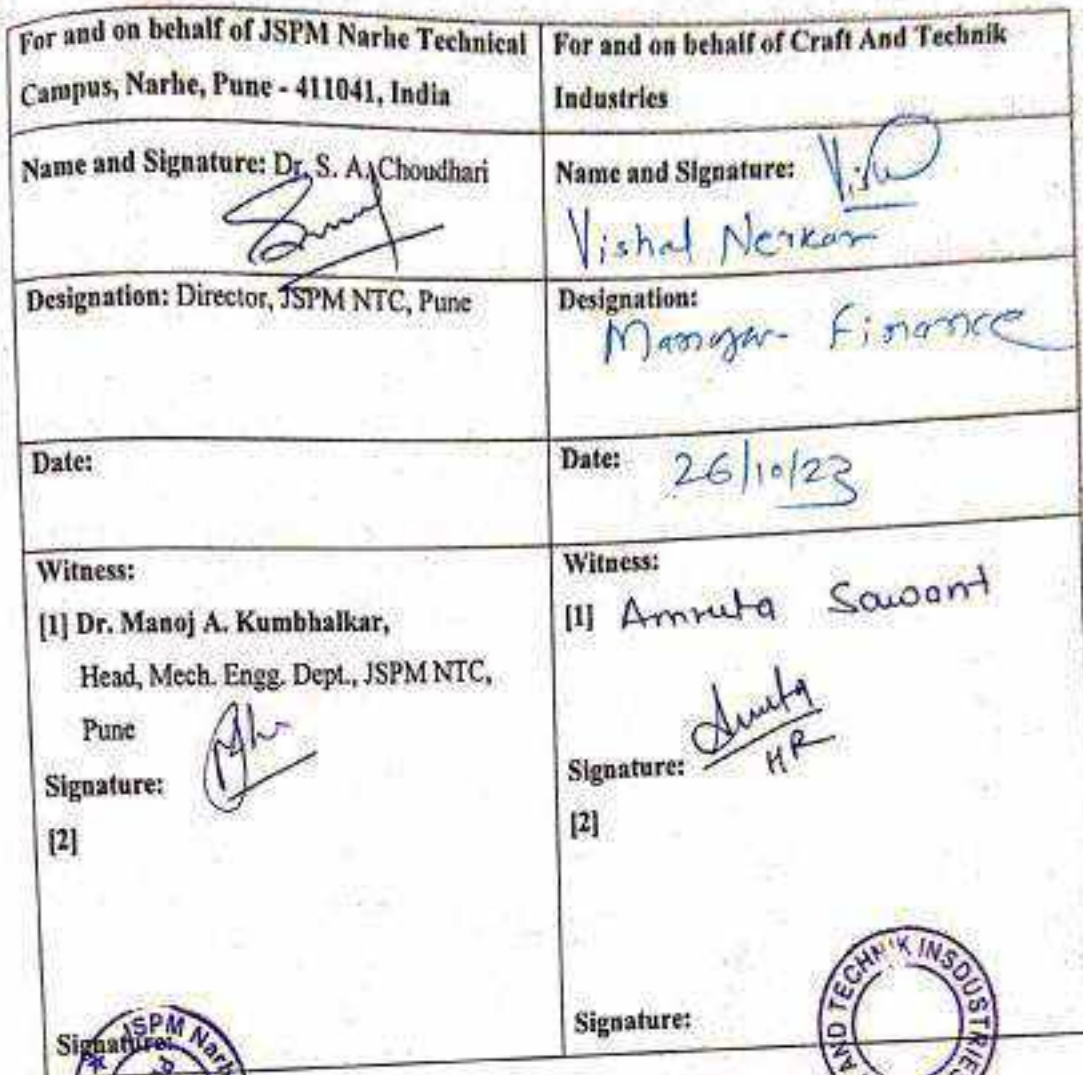 For and on behalf of JSPM Narhe Technical
Campus, Narhe, Pune - 411041, India
For and on behalf of Craft And Technik
Industries
Name and Signature: Dr. S. A. Choudhari
Name and Signature:
Vishal Nerkar
Designation: Director, JSPM NTC, Pune
Designation:
Manager Finance
Date:
Date: 26/10/23
Witness:
[1] Dr. Manoj A. Kumbhalkar,
Head, Mech. Engg. Dept., JSPM NTC,
Pune
Signature:
[2]
Signature:
Witness:
[1] Amruta Sawant
Signature:
HR
[2]
Signature:
JSPM Narh
AND TECHNIK INSDUSTRIES